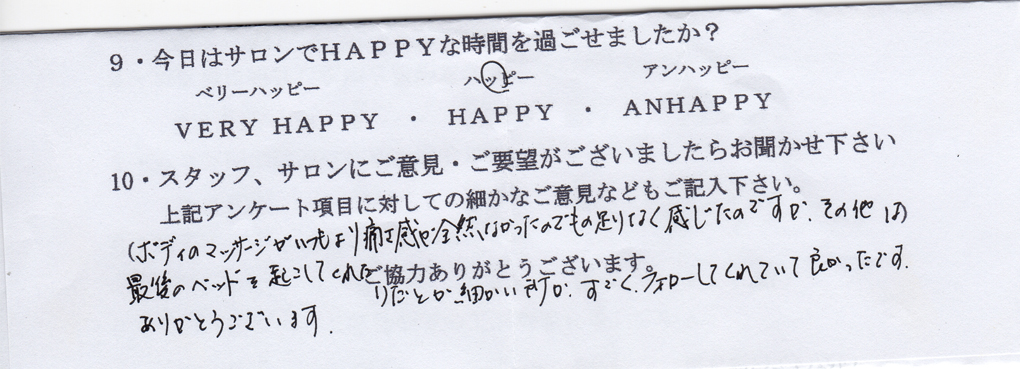 9・今日はサロンでHAPPYな時間を過ごせましたか?
ベリーハッピー ハッピー アンハッピー
VERY HAPPY ・ HAPPY ・ ANHAPPY
10・スタッフ、サロンにご意見・ご要望がございましたらお聞かせ下さい
上記アンケート項目に対しての細かなご意見などもご記入下さい。
(ボディのマッサージがいつもより痛さ感が全然なかったのでもの足りなく感じたのですが、その他は)
ご協力ありがとうございます。
最後のベッドを起こしてくれたりだとか細かい所が、すごくフォローしてくれていて良かったです。
ありがとうございます。